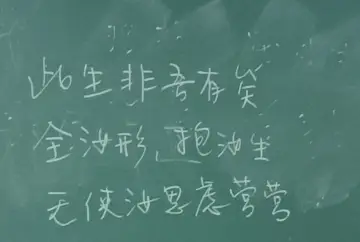 此生非吾有矣
全汝形,抱汝生
无使汝思虑营营